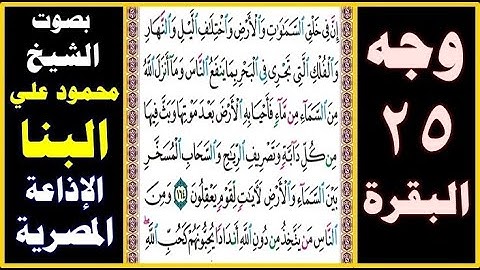 وجه
٢٥
البقرة
إِنَّ فِي خَلْقِ السَّمَٰوَٰتِ وَالْأَرْضِ وَاخْتِلَٰفِ الَّيْلِ وَالنَّهَارِ
وَالْفُلْكِ الَّتِي تَجْرِي فِي الْبَحْرِ بِمَا يَنفَعُ النَّاسَ وَمَا أَنزَلَ اللَّهُ
مِنَ السَّمَاءِ مِن مَّاءٍ فَأَحْيَا بِهِ الْأَرْضَ بَعْدَ مَوْتِهَا وَبَثَّ فِيهَا
مِن كُلِّ دَابَّةٍ وَتَصْرِيفِ الرِّيَٰحِ وَالسَّحَابِ الْمُسَخَّرِ
بَيْنَ السَّمَاءِ وَالْأَرْضِ لَءَايَٰتٍ لِّقَوْمٍ يَعْقِلُونَ ١٦٤ وَمِنَ
النَّاسِ مَن يَتَّخِذُ مِن دُونِ اللَّهِ أَندَادًا يُحِبُّونَهُمْ كَحُبِّ اللَّهِ
بصوت
الشيخ
محمود علي
البنا
الإذاعة
المصرية